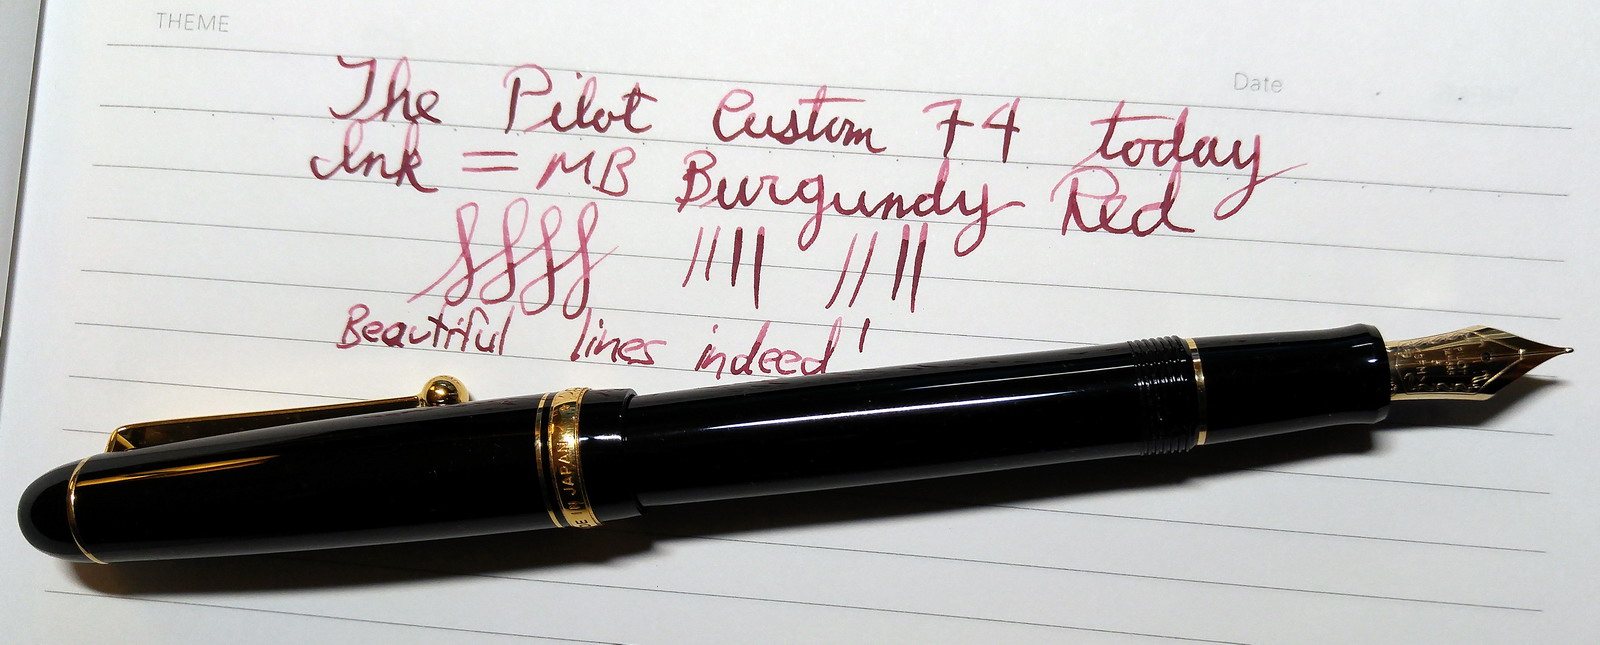 THEME
Date
The Pilot Custom 74 today
Ink = MB Burgundy Red
Beautiful lines indeed!
IN JAPAN